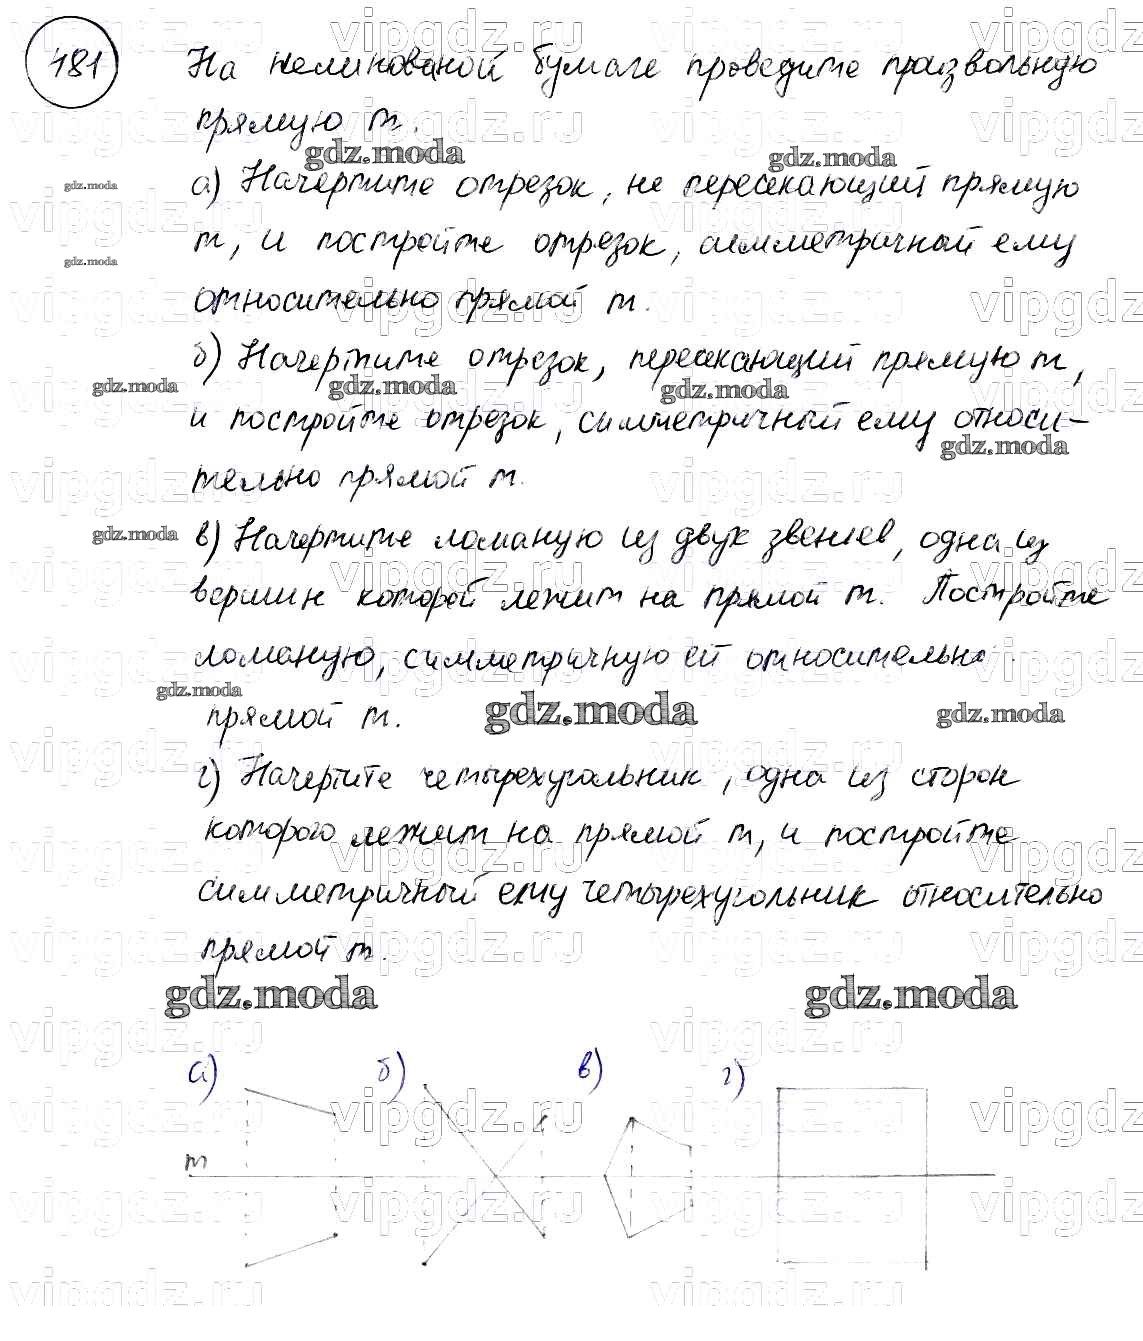 481
На нелинованой бумаге проведите произвольную
прямую m.
а) Начертите отрезок, не пересекающий прямую
m, и постройте отрезок, симметричной ему
относительно прямой m.
б) Начертите отрезок, пересекающий прямую m,
и постройте отрезок, симметричный ему относи-
тельно прямой m.
в) Начертите ломаную из двух звеньев, одна из
вершин которой лежит на прямой m. Постройте
ломаную, симметричную ей относительно
прямой m.
г) Начертите четырехугольник, одна из сторон
которого лежит на прямой m, и постройте
симметричный ему четырехугольник относительно
прямой m.
gdz.moda gdz.moda
а) б) в) г)
m
vipgdz.ru